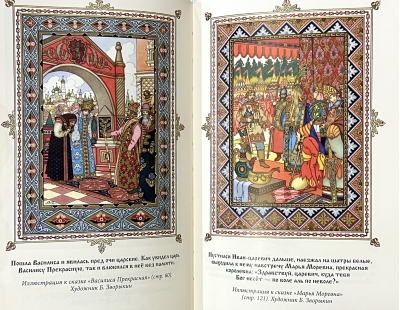 Пошла Василиса и явилась пред очи царские. Как увидел царь
Василису Прекрасную, так и влюбился в неё без памяти.
Иллюстрация к сказке «Василиса Прекрасная» (стр. 60)
Художник Б. Зворыкин
Пустился Иван-царевич дальше, наезжал на шатры белые,
выходила к нему навстречу Марья Моревна, прекрасная
королевна: «Здравствуй, царевич, куда тебя
Бог несёт — по воле аль по неволе?»
Иллюстрация к сказке «Марья Моревна»
(стр. 121). Художник Б. Зворыкин